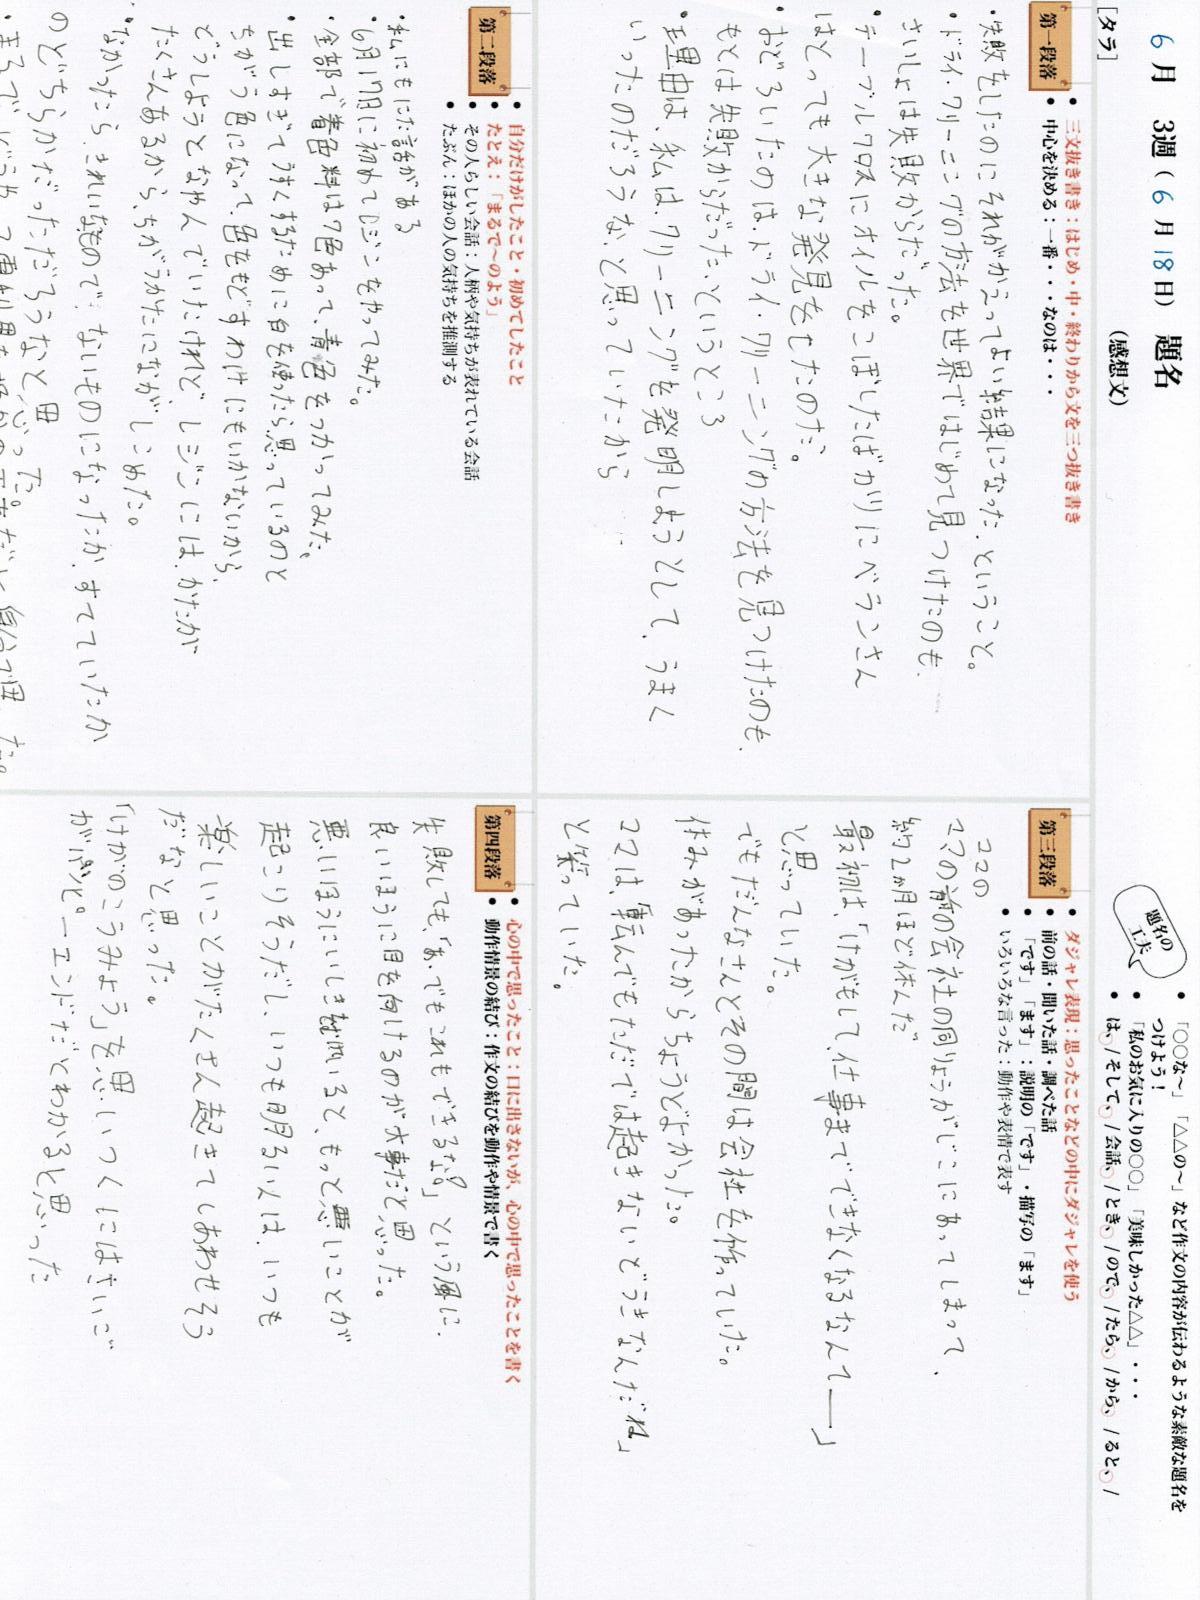 6月 3週(6月18日) 題名
[タラ] (感想文)
題名の工夫
• 「○○な～」「△△の～」など作文の内容が伝わるような素敵な題名を
つけよう!
• 「私のお気に入りの○○」「美味しかった△△」・・・
• は、/そして、/会話、/とき、/ので、/たら、/から、/ると、/
第一段落
• 三文抜き書き:はじめ・中・終わりから文を三つ抜き書き
• 中心を決める:一番・・・なのは・・・
・失敗をしたのにそれがかえってよい結果になった、ということ。
・ドライ・クリーニングの方法を世界ではじめて見つけたのも、
さいしょは失敗からだった。
・テーブルクロスにオイルをこぼしたばかりにベランさん
はとっても大きな発見をしたのだ。
おどろいたのは、ドライ・クリーニングの方法を見つけたのも、
もとは失敗からだった、というところ
・理由は、私は、クリーニングを発明しようとして、うまく
いったのだろうな、と思っていたから
第二段落
• 自分だけがしたこと・初めてしたこと
• たとえ:「まるで～のよう」
• その人らしい会話:人柄や気持ちが表れている会話
• たぶん:ほかの人の気持ちを推測する
・私にもにた話がある
・6月17日に初めてレジンをやってみた。
・全部で着色料は7色あって、青色をつかってみた。
・出しすぎてうすくするために白を使ったら思っているのと
ちがう色になって、色をもどすわけにもいかないから、
どうしようとなやんでいたけれど、レジンには、かたが
たくさんあるから、ちがうかたにながしこめた。
・なかったら、きれい
ないものになったか、すてていたか
のどちらかだっただろうなと思った。
第三段落
• ダジャレ表現:思ったことなどの中にダジャレを使う
• 前の話・聞いた話・調べた話
• 「です」「ます」:説明の「です」・描写の「ます」
• いろいろな言った:動作や表情で表す
ママの
ママの前の会社の同りょうがじこにあってしまって、
約2か月ほど休んだ
最初は、「けがもして、仕事までできなくなるなんて――」
と思っていた。
でもだんなさんとその間は会社を作っていた。
休みがあったからちょうどよかった。
ママは、「転んでもただでは起きないどうきなんだね」
と笑っていた。
第四段落
• 心の中で思ったこと:口に出さないが、心の中で思ったことを書く
• 動作情景の結び:作文の結びを動作や情景で書く
失敗しても、「あ、でもこれもできるな!」という風に、
良いほうに目を向けるのが大事だと思った。
悪いほうにいしき
いると、もっと悪いことが
起こりそうだし、いつも明るい人は、いつも
楽しいことがたくさん起きてしあわせそう
だなと思った。
「けがのこうみょう」を思いつくにはさいご
が
エンドだとわかると思った